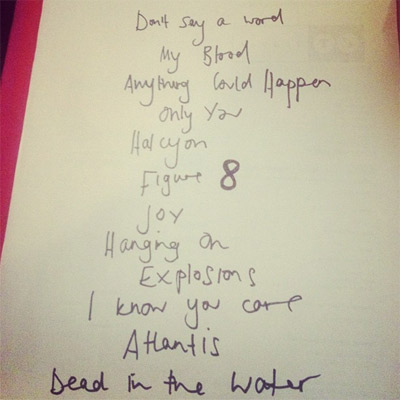 Don't say a word
My Blood
Anything Could Happen
Only You
Halcyon
Figure 8
Joy
Hanging On
Explosions
I know you care
Atlantis
Dead in the Water